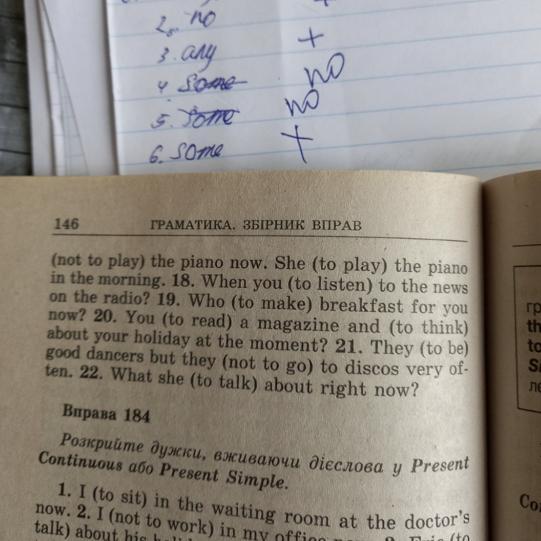 2. no
+
3. any +
4 some no
5. some no
6. some +
146 ГРАМАТИКА. ЗБІРНИК ВПРАВ
(not to play) the piano now. She (to play) the piano
in the morning. 18. When you (to listen) to the news
on the radio? 19. Who (to make) breakfast for you
now? 20. You (to read) a magazine and (to think)
about your holiday at the moment? 21. They (to be)
good dancers but they (not to go) to discos very of-
ten. 22. What she (to talk) about right now?
Вправа 184
Розкрийте дужки, вживаючи дієслова у Present
Continuous або Present Simple.
1. I (to sit) in the waiting room at the doctor's
now. 2. I (not to work) in my office (to
talk) about his
гр
th
to
S
ле
Co